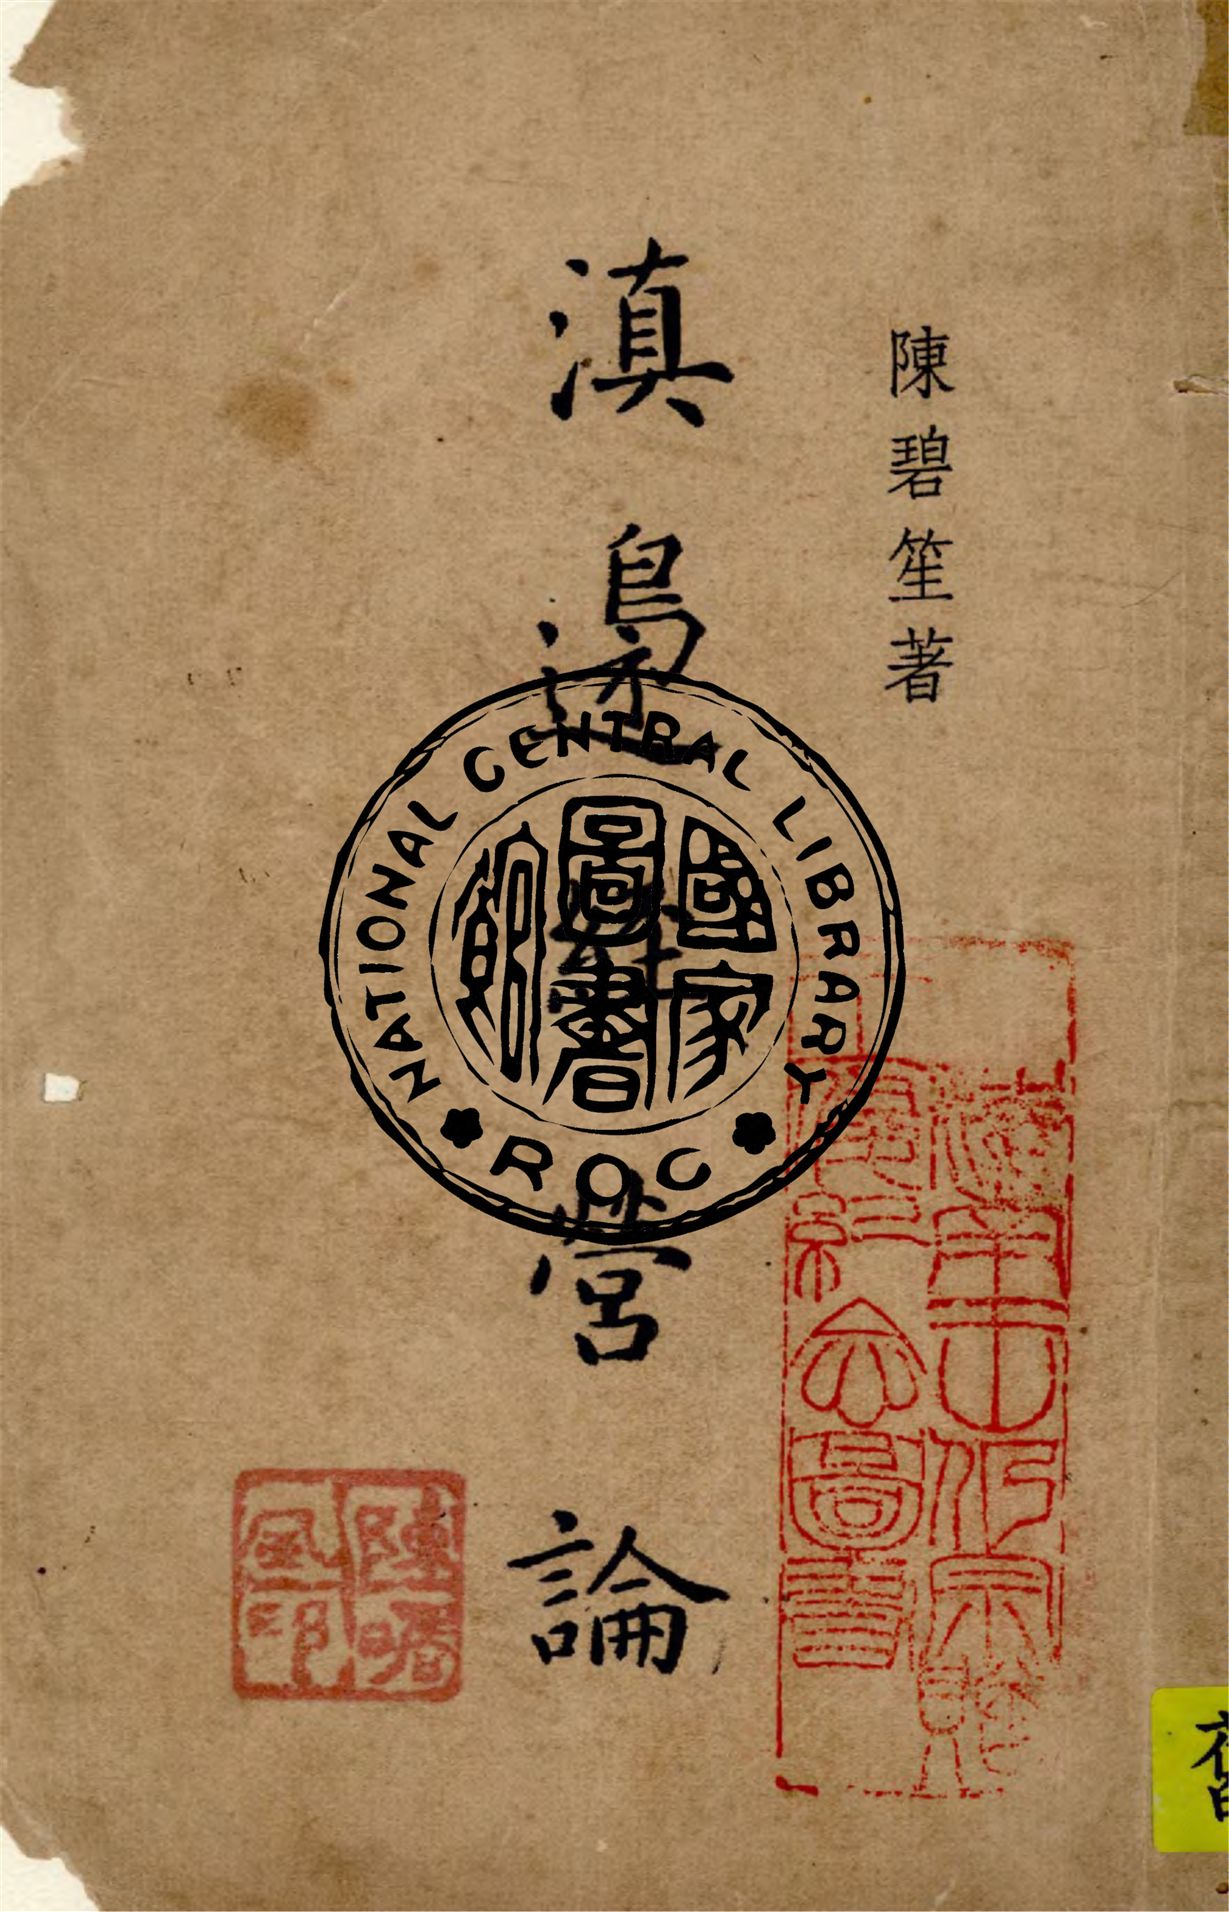 陳碧笙著
滇邊經營論
NATIONAL CENTRAL LIBRARY
國家圖書館
ROC
陳曙風印
舊